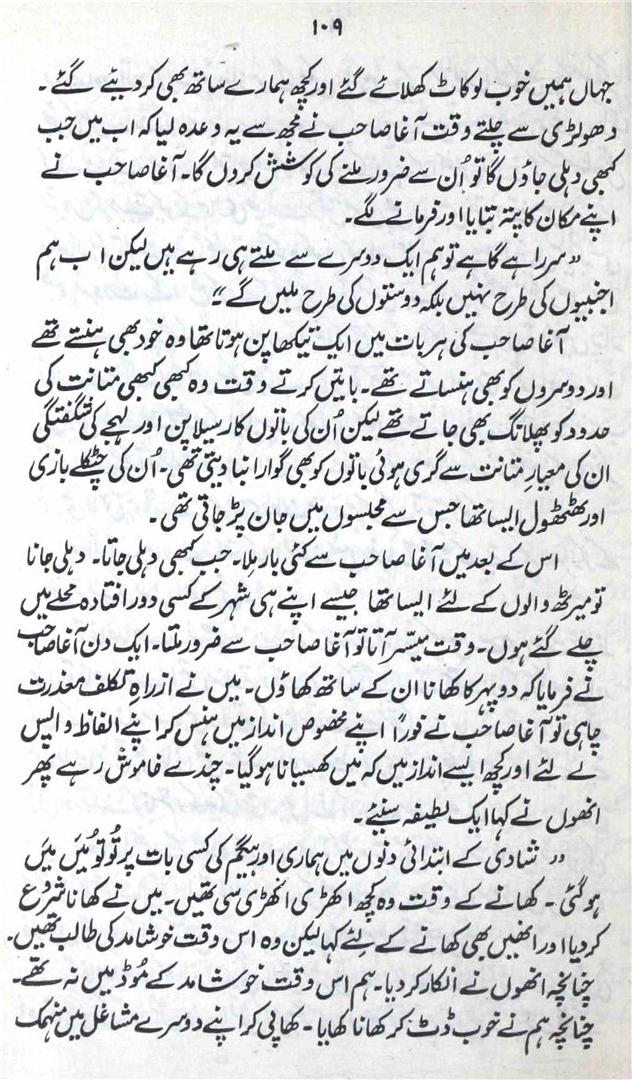 ۱۰۹
جہاں ہمیں خوب لوکاٹ کھلائے گئے اور کچھ ہمارے ساتھ بھی کر دیئے گئے۔
دھولڑی سے چلتے وقت آغا صاحب نے مجھ سے یہ وعدہ لیا کہ اب میں جب
کبھی دہلی جاؤں گا تو اُن سے ضرور ملنے کی کوشش کروں گا۔ آغا صاحب نے
اپنے مکان کا پتہ بتایا اور فرمانے لگے۔
"سررا ہے گاہے تو ہم ایک دوسرے سے ملتے ہی رہے ہیں لیکن اب ہم
اجنبیوں کی طرح نہیں بلکہ دوستوں کی طرح ملیں گے"
آغا صاحب کی ہر بات میں ایک تیکھا پن ہوتا تھا وہ خود بھی ہنستے تھے
اور دوسروں کو بھی ہنساتے تھے۔ باتیں کرتے وقت وہ کبھی کبھی متانت کی
حدود کو پھلانگ بھی جاتے تھے لیکن اُن کی باتوں کا رسیلا پن اور لہجے کی شگفتگی
ان کی معیارِ متانت سے گری ہوئی باتوں کو بھی گوارا بنا دیتی تھی۔ اُن کی چٹکلے بازی
اور ٹھٹھول ایسا تھا جس سے مجلسوں میں جان پڑ جاتی تھی۔
اس کے بعد میں آغا صاحب سے کئی بار ملا۔ جب کبھی دہلی جاتا۔ دہلی جانا
تو میرٹھ والوں کے لئے ایسا تھا جیسے اپنے ہی شہر کے کسی دور افتادہ محلے میں
چلے گئے ہوں۔ وقت میسّر آتا تو آغا صاحب سے ضرور ملتا۔ ایک دن آغا صاحب
نے فرمایا کہ دوپہر کا کھانا ان کے ساتھ کھاؤں۔ میں نے ازراہِ تکلف معذرت
چاہی تو آغا صاحب نے فوراً اپنے مخصوص انداز میں ہنس کر اپنے الفاظ واپس
لے لئے اور کچھ ایسے انداز میں کہ میں کھسیانا ہو گیا۔ چندے خاموش رہے پھر
انھوں نے کہا ایک لطیفہ سنیئے۔
"شادی کے ابتدائی دنوں میں ہماری اور بیگم کی کسی بات پر تُو تُو مَیں مَیں
ہو گئی۔ کھانے کے وقت وہ کچھ اکھڑی اکھڑی سی تھیں۔ میں نے کھانا شروع
کر دیا اور انھیں بھی کھانے کے لئے کہا لیکن وہ اس وقت خوشامد کی طالب تھیں۔
چنانچہ انھوں نے انکار کر دیا۔ ہم اس وقت خوشامد کے مُوڈ میں نہ تھے۔
چنانچہ ہم نے خوب ڈٹ کر کھانا کھایا۔ کھا پی کر اپنے دوسرے مشاغل میں منہمک